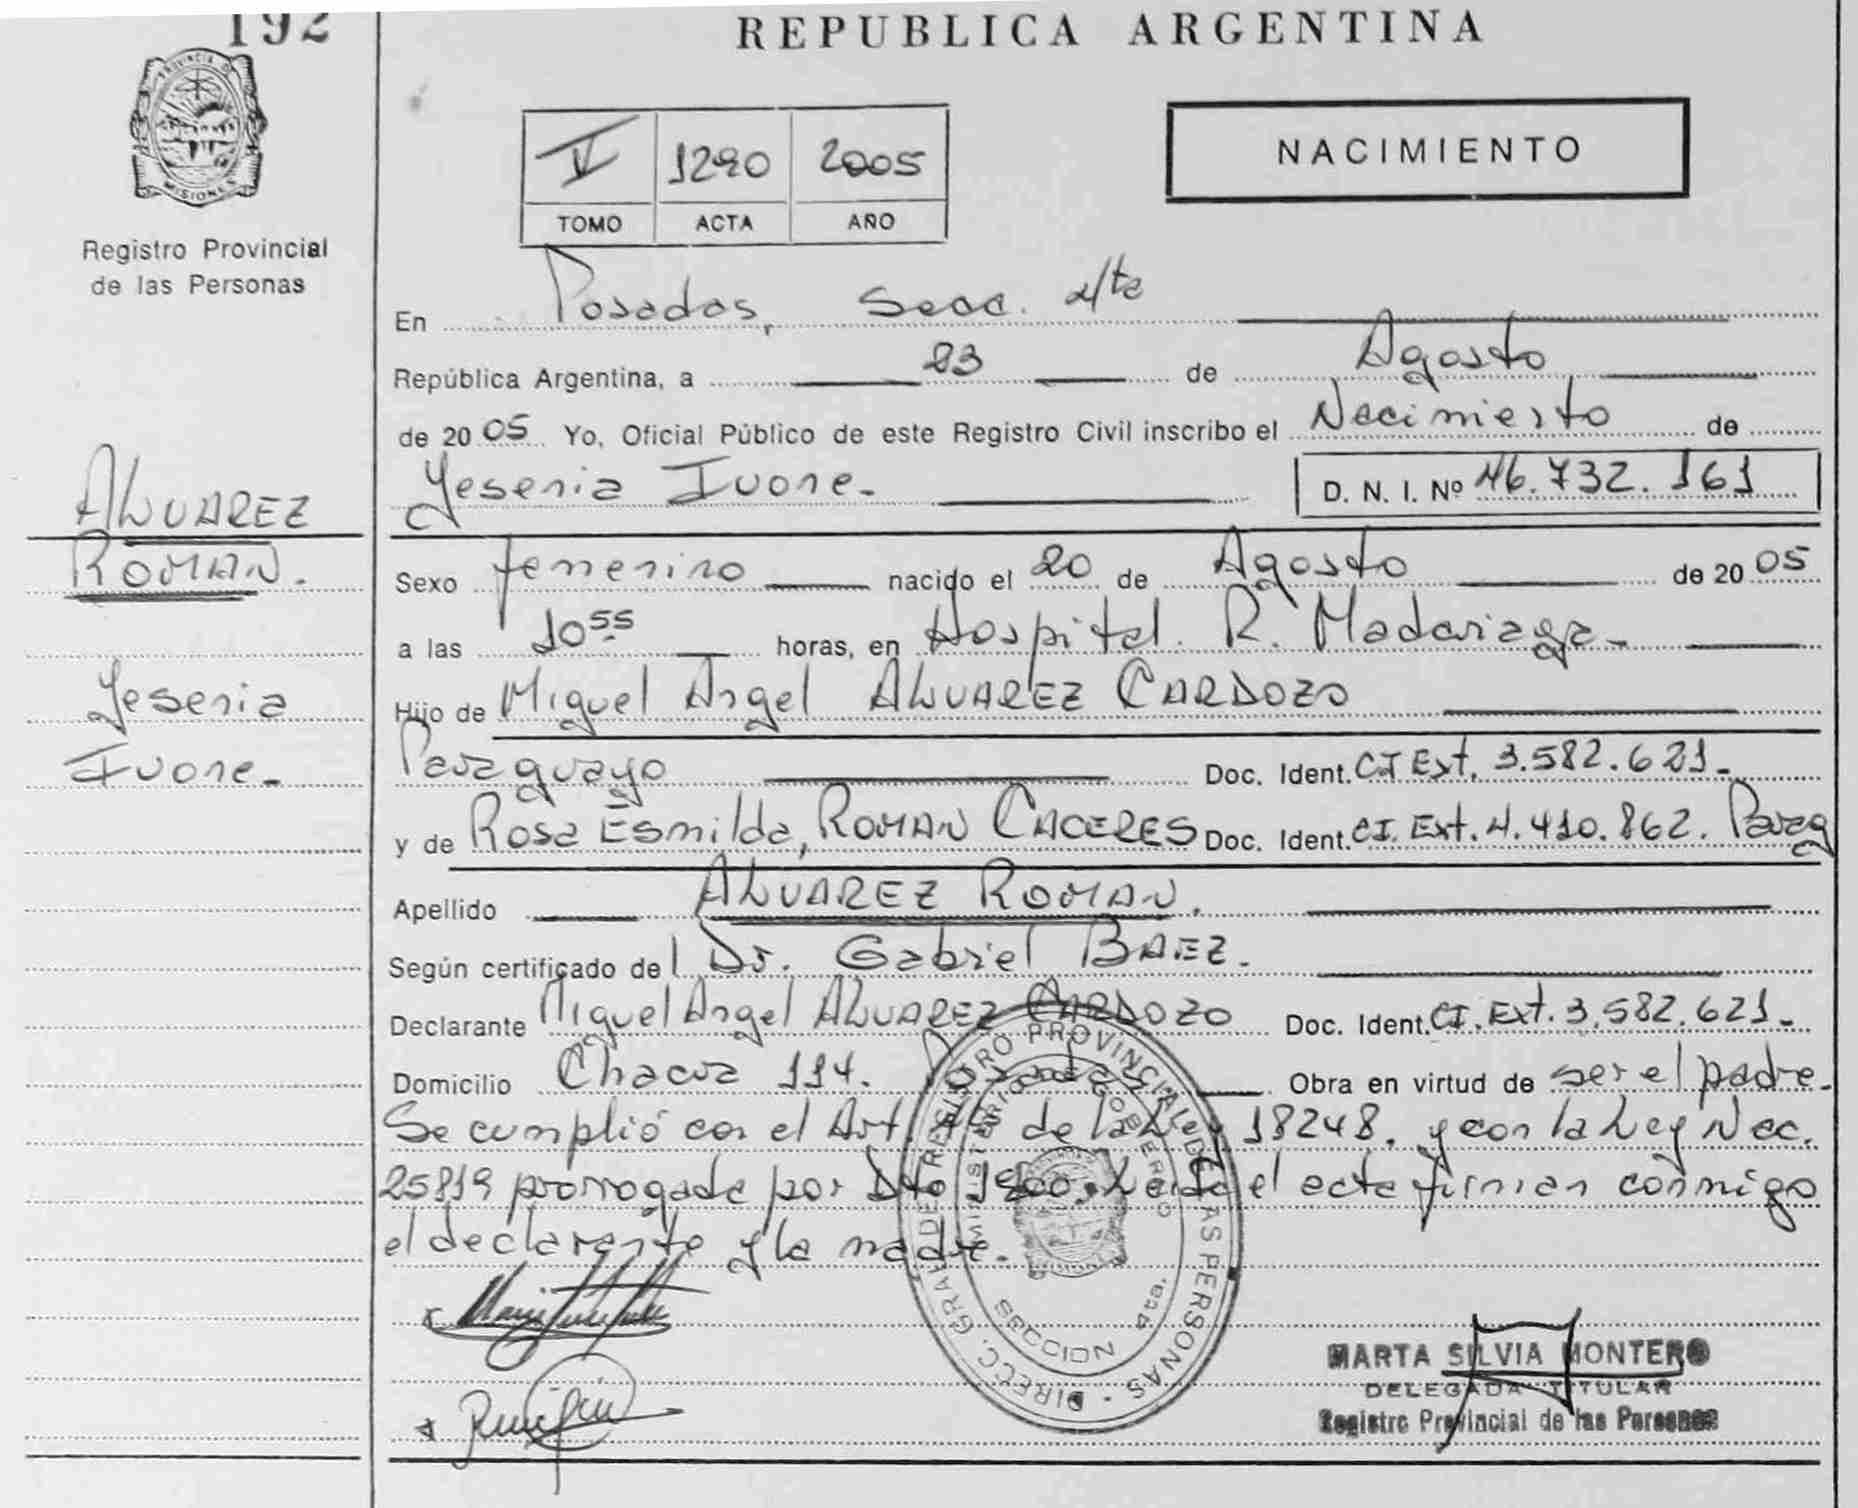 192
PROVINCIA D
MISIONES
Registro Provincial
de las Personas
ALVAREZ
ROMAN.
Yesenia
Ivone.-
REPUBLICA ARGENTINA
V 1290 2005
TOMO ACTA AÑO
NACIMIENTO
En Posadas, Secc. 4ta
República Argentina, a 23 de Agosto
de 2005 Yo, Oficial Público de este Registro Civil inscribo el Nacimiento de
Yesenia Ivone.- D. N. I. Nº 46.732.161
Sexo femenino nacido el 20 de Agosto de 2005
a las 10 55 horas, en Hospital. R. Madariaga-
Hijo de Miguel Angel ALVAREZ CARDOZO
Paraguayo Doc. Ident. CI Ext. 3.582.621-
y de Rosa Esmilda, ROMAN CACERES Doc. Ident. CI. Ext. 4.410.862. Parag
Apellido ALVAREZ ROMAN.
Según certificado del Dr. Gabriel BAEZ.-
Declarante Miguel Angel ALVAREZ CARDOZO Doc. Ident. CI. Ext. 3.582.621-
Domicilio Chacra 114. Posadas Obra en virtud de ser el padre.
Se cumplió con el Art. de la Ley 18248. y con la Ley Nac.
25819 prorrogada por Dto Leída el acta firman conmigo
el declarante y la madre.
DIRECC. GRAL DE REGISTRO PROVINCIAL DE LAS PERSONAS
MINISTERIO DE GOBIERNO
SECCION 4ta.
MARTA SILVIA MONTERO
DELEGADA TITULAR
Registro Provincial de las Personas